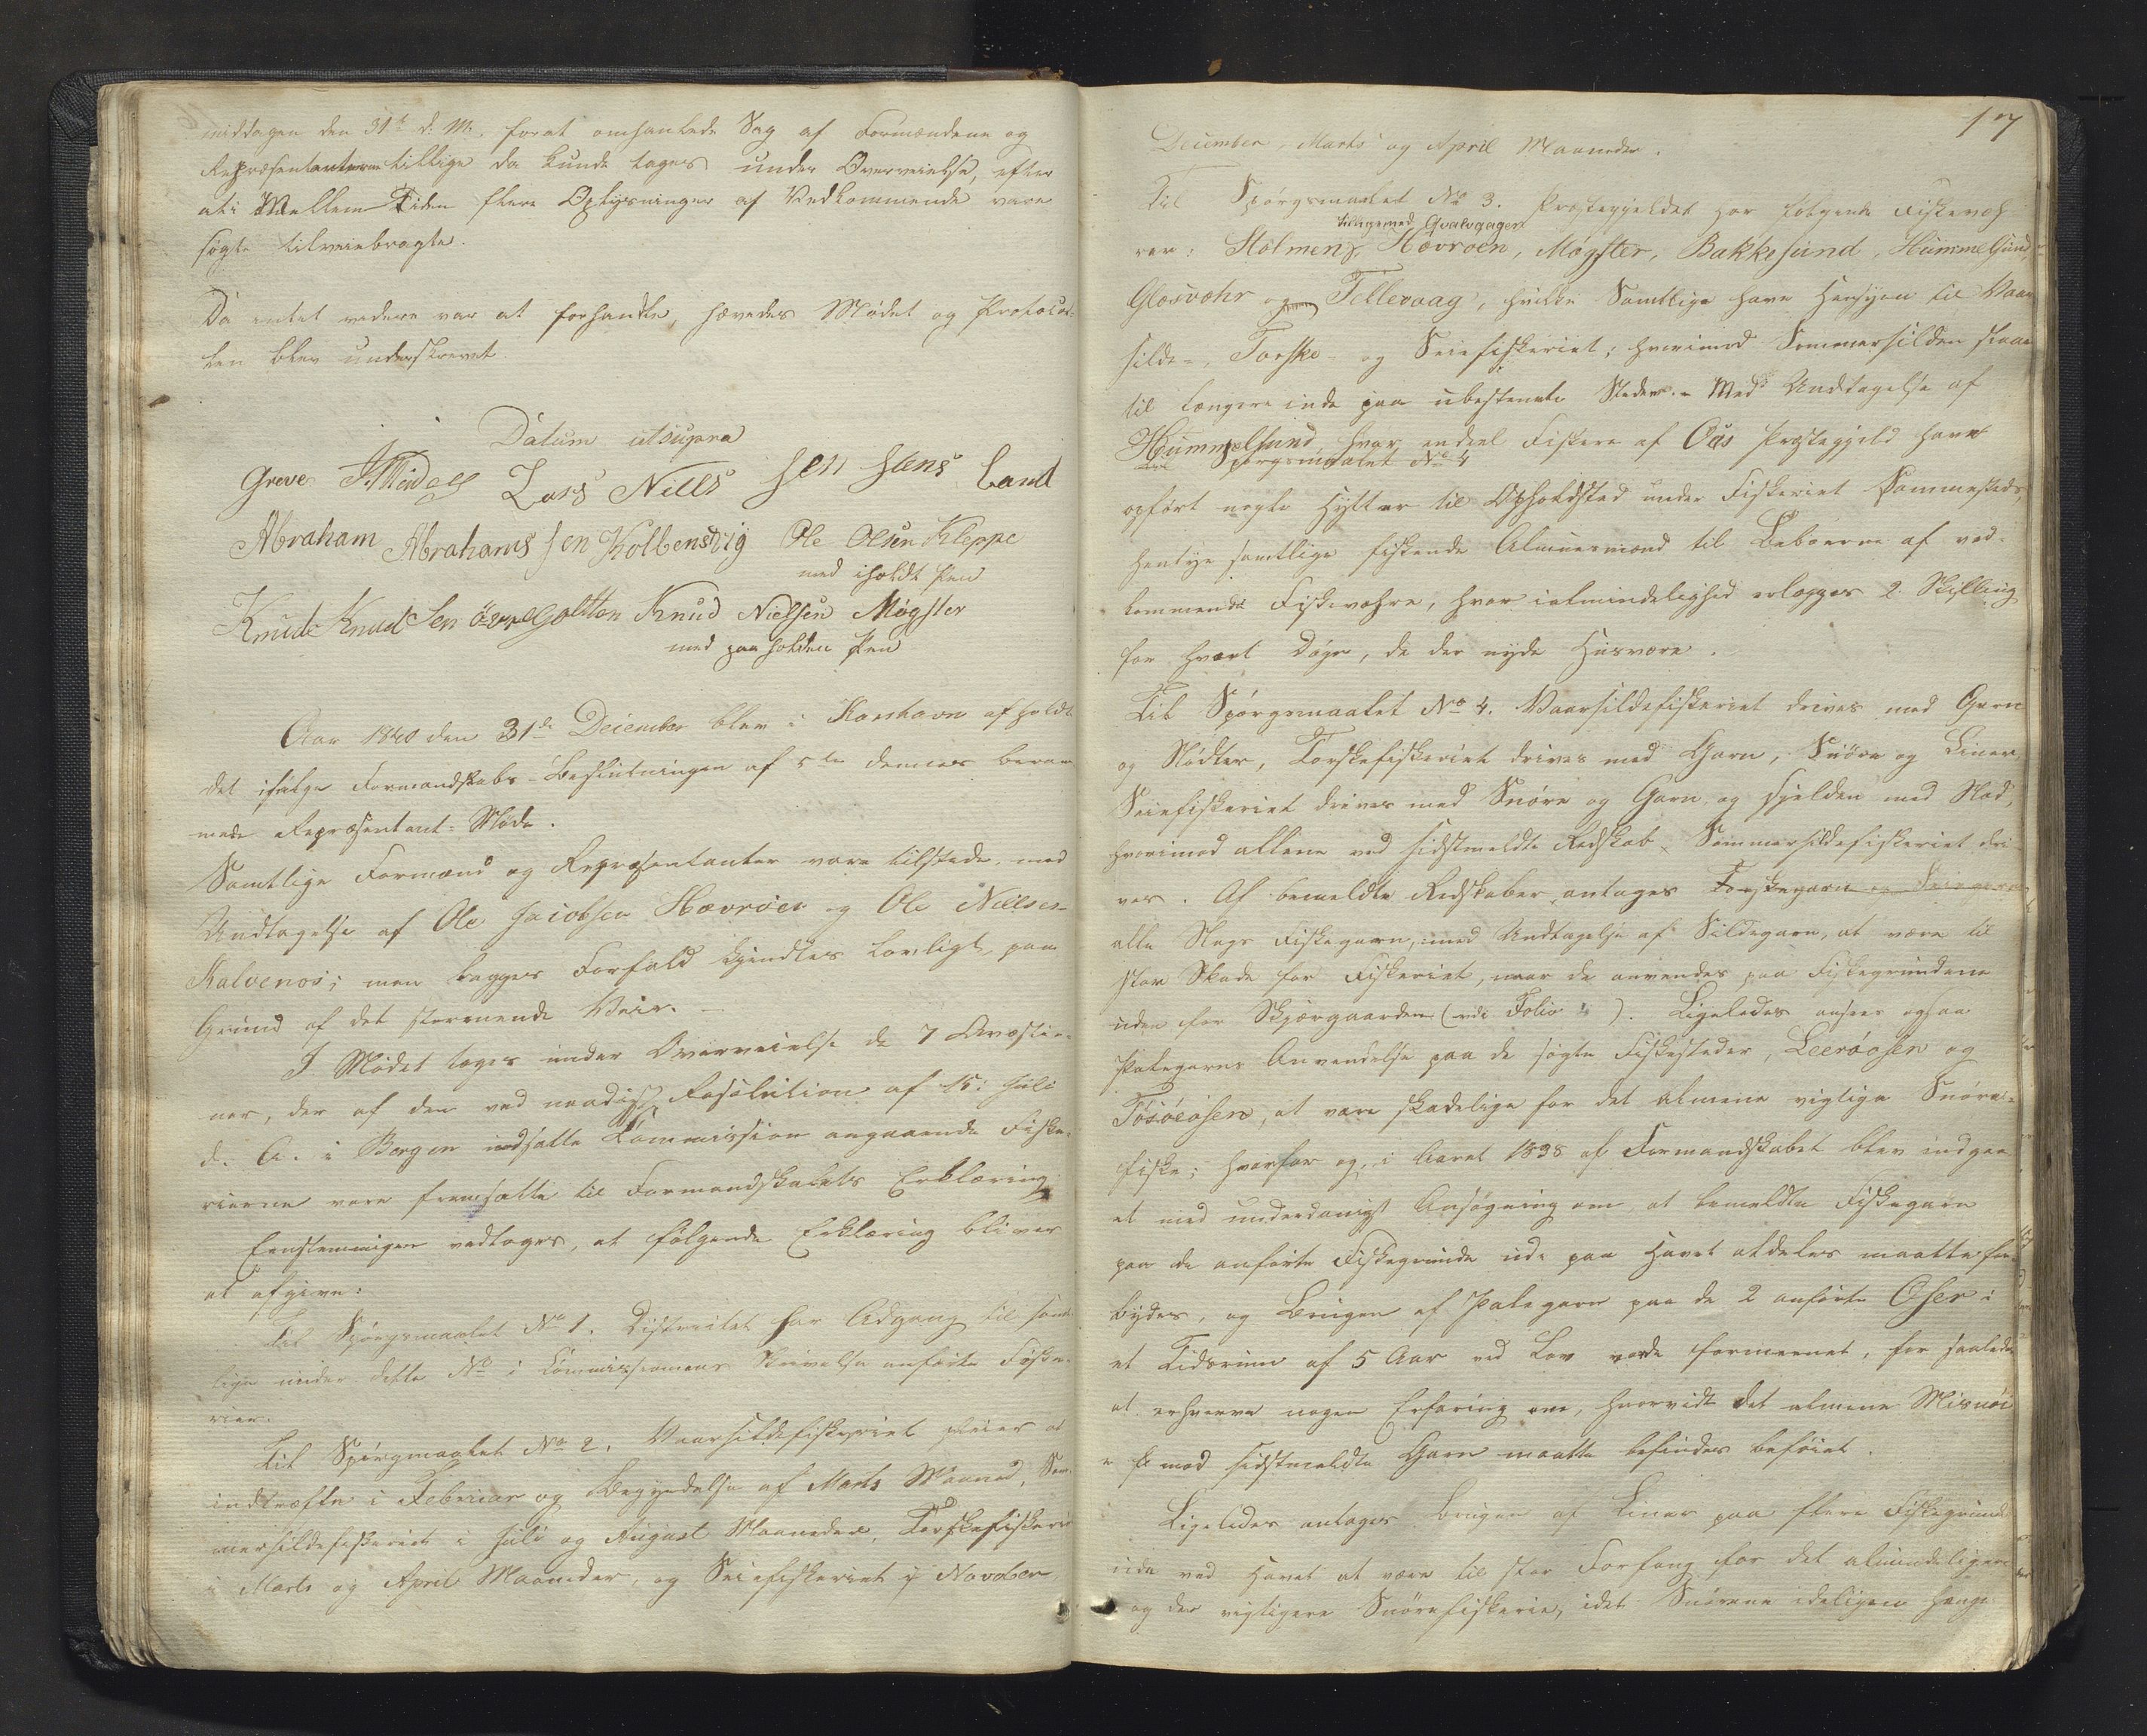 middagen den 31te d. M. forat omhandlede Sag af Formændene og
Repræsentanterne tillige da kunde tages under Overveielse, efter
at i Mellem Tiden flere Oplysninger af Vedkommende vare
søgte tilveiebragte.
Da intet videre var at forhandle, hævedes Mødet og Protocol-
len blev underskrevet
Datum utsupra
Greve Lars Nills Jen Jens Land
Abraham Abrahams sen Kolbensvig Ole Olsen Kleppe
med iholdt Pen
Knud Knud Sen Golten Knud Nielsen Møgster
med paaholden Pen
Aar 1840 den 31de December blev i Korshavn afholdt
det ifølge Formandskabs-Beslutningen af 5te dennes beram-
mede Repræsentant-Møde.
Samtlige Formænd og Repræsentanter vare tilstede, med
Undtagelse af Ole Jacobsen Hævrøen og Ole Nielsen
Kalvenøs; men begges Forfald kjendtes lovligt, paa
Grund af det stormende Veir. -
I Mødet toges under Overveielse de 7 Qvæstio-
ner, der af den ved naadigst Resolution af 15. Juli
d. A. i Bergen nedsatte Commission angaaende Fiske-
rierne vare fremsatte til Formandskabets Erklæring
Eenstemmigen vedtoges, at følgende Erklæring bliver
at afgive:
Til Spørgsmaalet No 1. Districtet har Adgang til samt-
lige under dette No i Commissionens Skrivelse anførte Fiske-
rier.
Til Spørgmaalet No 2. Vaarsildefiskeriet pleier at
indtræffe i Februar og Begyndelse af Marts Maaned, Som-
mersildefiskeriet i Juli og August Maaneder, Torskefiskeriet
i Marts og April Maaneder, og Seiefiskeriet i November
17
December, Marts og April Maaneder.
Til Spørgsmaalet No 3. Præstegjeldet har følgende Fiskevæh-
tilligemed Qvalvaagen
rer: Holmen, Hævrøen, Møgster, Bakkesund, Hummelsund,
Glæsvæhr og Tellevaag, hvilke Samtlige have Hensyn til Vaar-
silde-, Torske- og Seiefiskeriet; hvorimod Sommersilden staaer
til længere inde paa ubestemte Steder. - Med Undtagelse af
Hummelsund, hvor endeel Fiskere af Oös Præstegjeld have
Spørgsmaalet No 4
opført nogle Hytter til Opholdsted under Fiskeriet sammesteds,
hentye samtlige fiskende Almuesmænd til Beboerne af ved-
kommende Fiskevæhre, hvor i almindelighed erlægges 2 Skilling
for hvert Døgn, de der nyde Huusvære.
Til Spørgsmaalet No 4. Vaarsildefiskeriet drives med Garn
og Nødter, Torskefiskeriet drives med Garn, Snøre og Liner,
Seiefiskeriet drives med Snøre og Garn og sjelden med Nod,
hvorimod allene ved sidstmeldte Redskab Sommersildefiskeriet dri-
ves. Af bemeldte Redskaber antages Torskegarn og Seiegarn
alle Slags Fiskegarn, med Undtagelse af Sildegarn, at være til
stor Skade for Fiskeriet, naar de anvendes paa Fiskegrundene
uden for Skjærgaarden (vide Folio ). Ligeledes ansees ogsaa
Palegarns Anvendelse paa de søgte Fiskesteder, Leerøosen og
Tøsøeosen, at være skadelige for det almene vigtige Snøre-
fiske; hvorfor og i Aaret 1838 af Formandskabet blev indgaa-
et med underdanigst Ansøgning om, at bemeldte Fiskegarn
paa de anførte Fiskegrunde ude paa Havet aldeles maatte for-
bydes, og Brugen af Palegarn paa de 2 anførte Oser i
et Tidsrum af 5 Aar ved Lov vorde formeenet, for saaledes
at erhverve nogen Erfaring om, hvorvidt det almene Misnøi
e mod sidstmeldte Garn maatte befindes beføiet.
Ligeledes antages Brugen af Liner paa flere Fiskegrunde
ude ved Havet at være til stor Forfang for det almindeligere
og det vigtigere Snørefiskerie, idet Snørene ideligen hænge